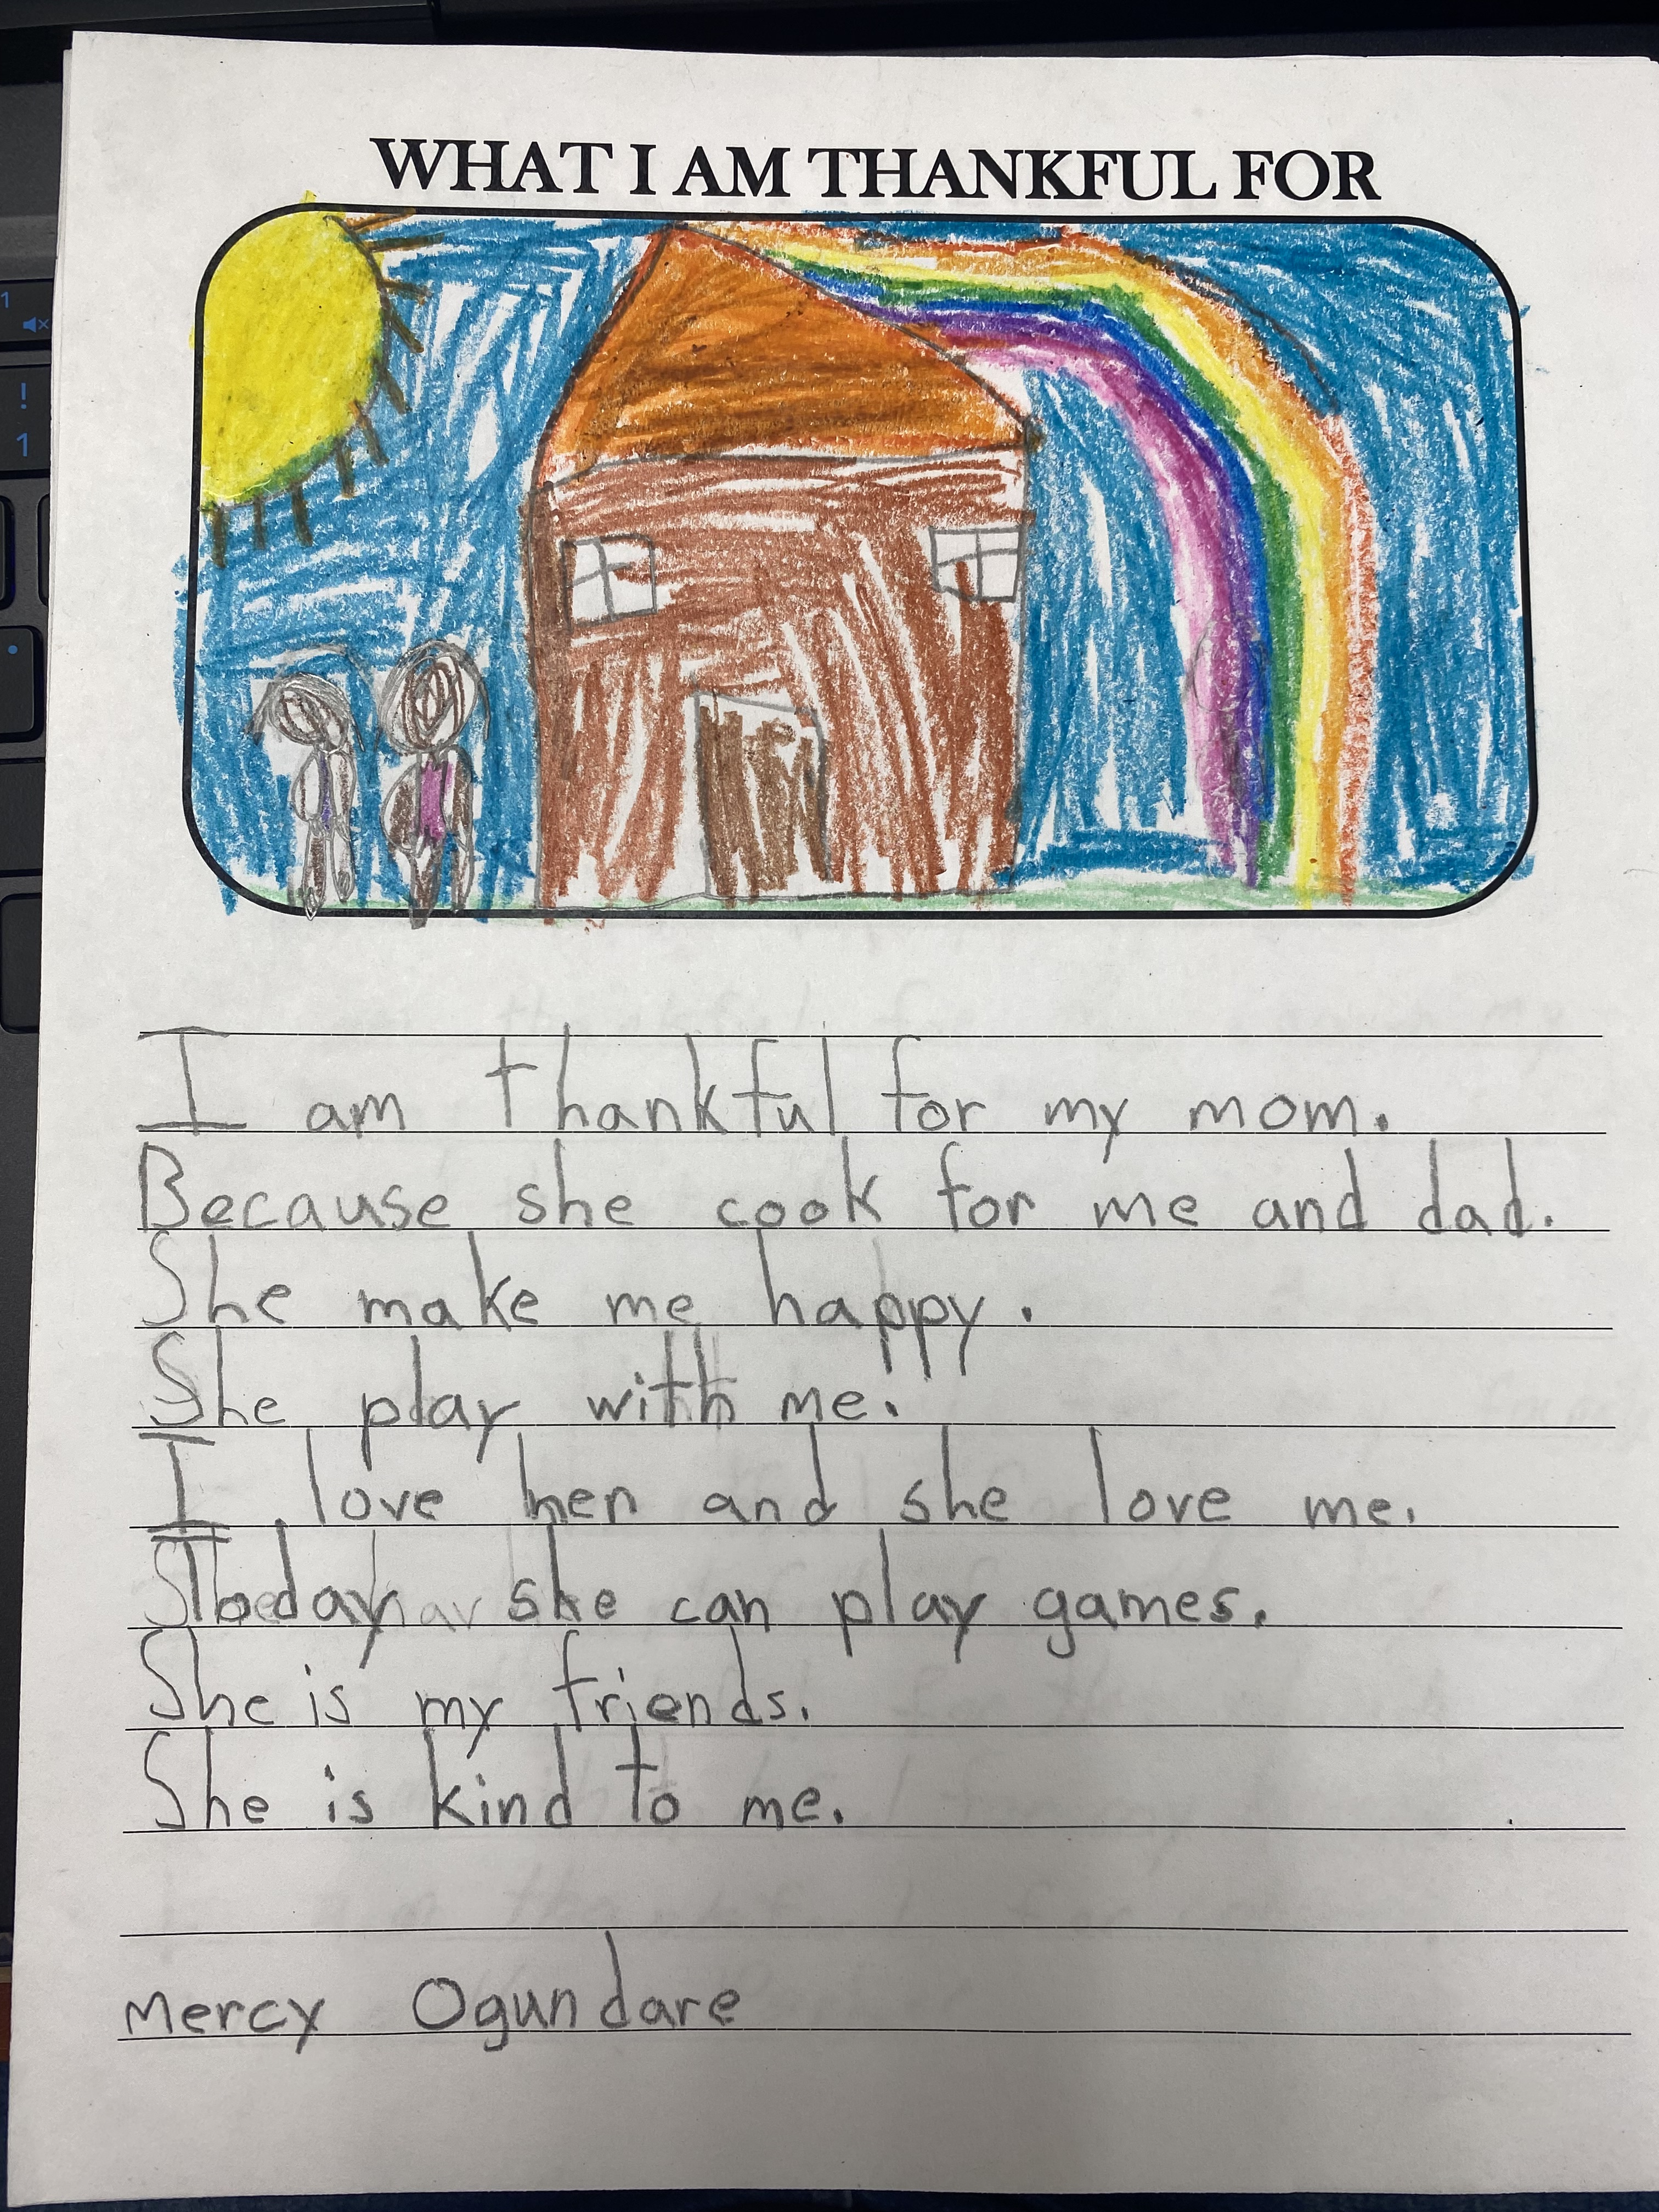 WHAT I AM THANKFUL FOR
I am thankful for my mom.
Because she cook for me and dad.
She make me happy.
She play with me.
I love her and she love me.
Today she can play games.
She is my friends.
She is kind to me.
Mercy Ogundare